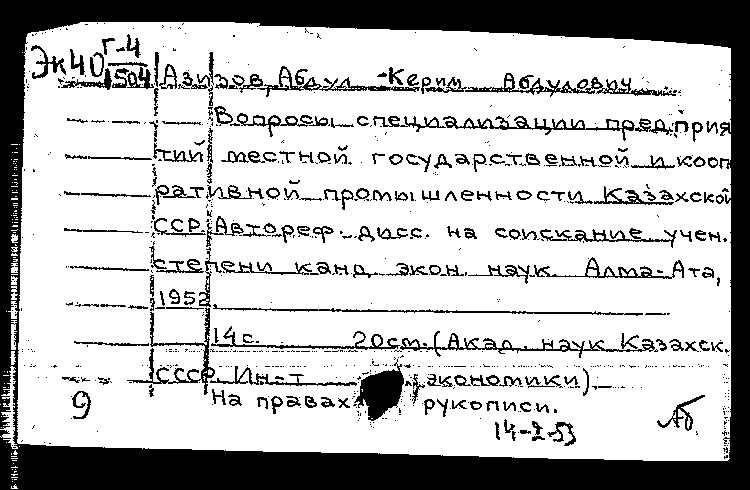 Эк40 Г-4
1504
Азизов, Абдул-Керим Абдулович
Вопросы специализации предприя
тий местной государственной и кооп
ративной промышленности Казахской
ССР. Автореф. дисс. на соискание учен.
степени канд. экон. наук. Алма-Ата,
1952.
14с. 20см. (Акад. наук Казахск.
СССР. Ин-т экономики).
На правах рукописи.
9
14-2-53